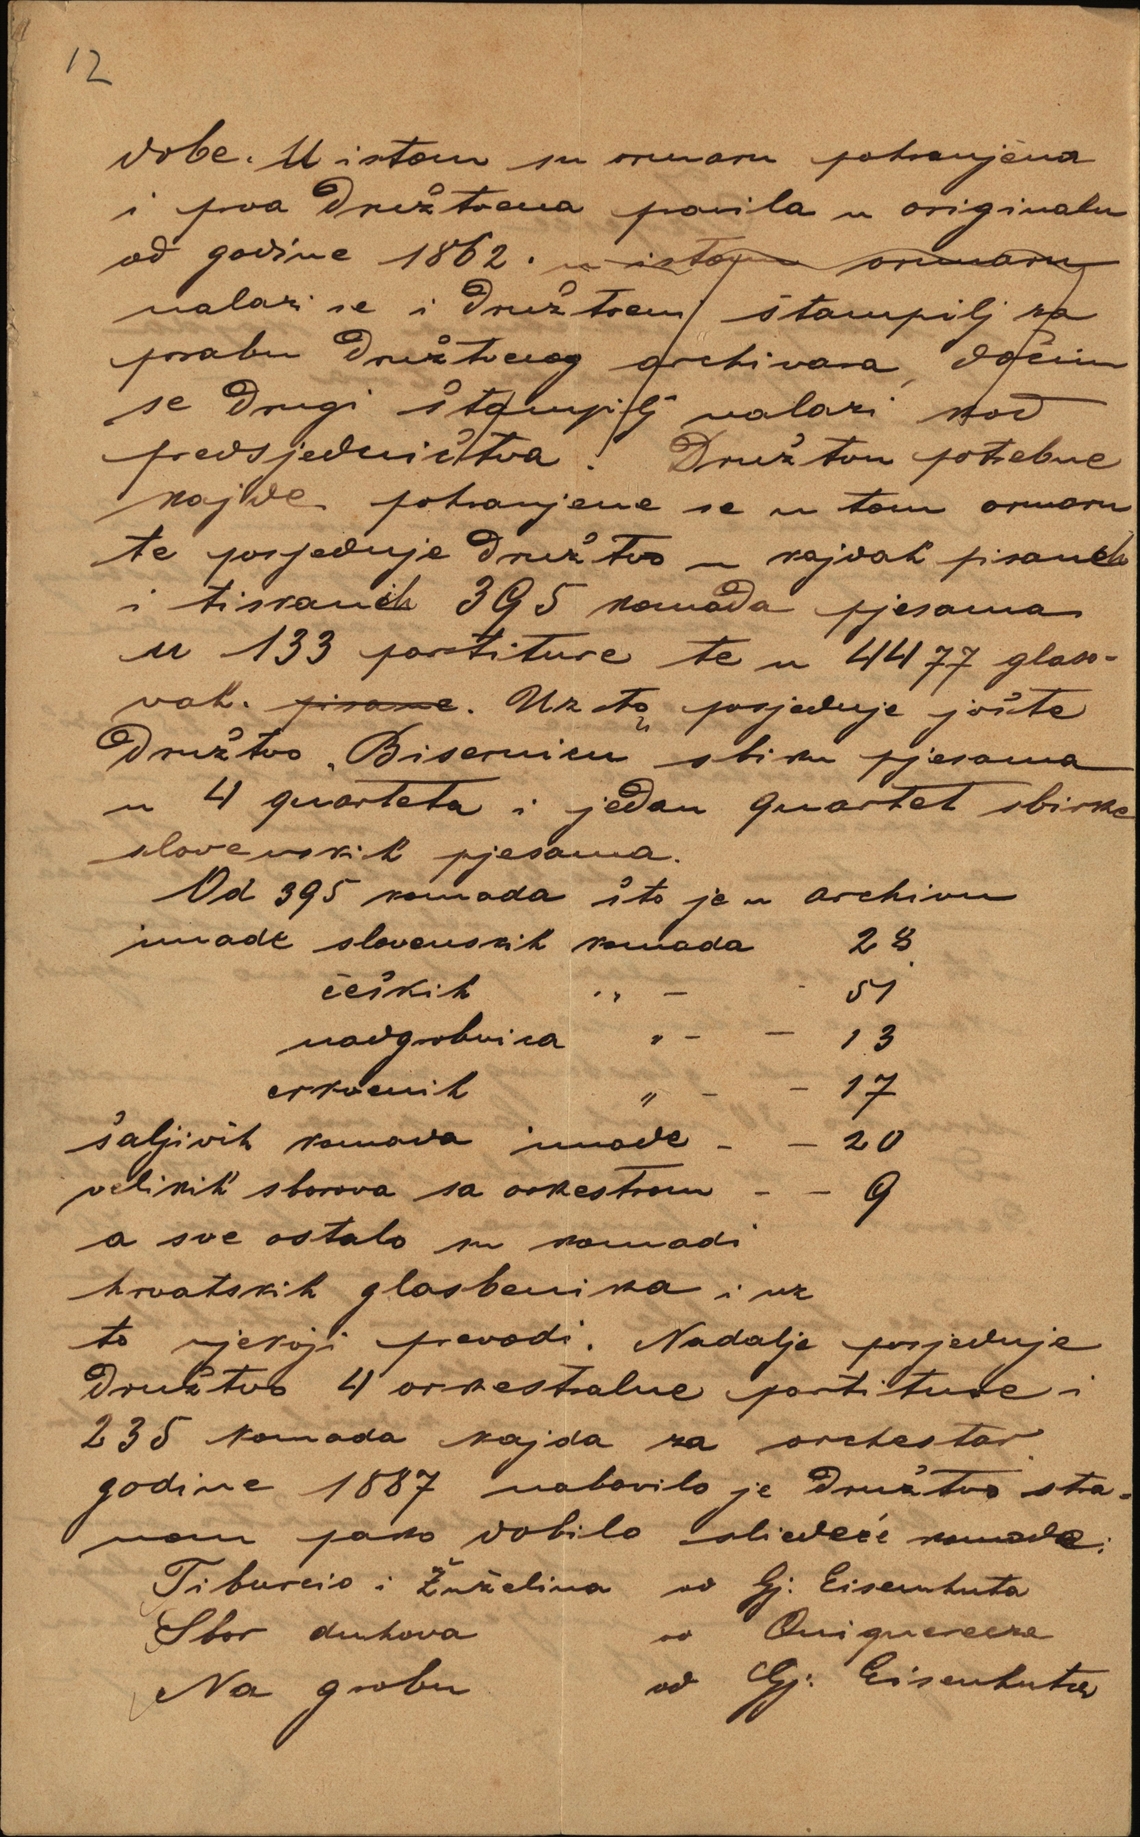 12
dobe. U istom su ormaru pohranjena
i prva družtvena pravila u originalu
od godine 1862. u istom ormaru
nalazi se i družtveni štampilj za
porabu družtvenog archivara, dočim
se drugi štampilj nalazi kod
predsjedničtva. Družtvu potrebne
kajde pohranjene se u tom ormaru
te posjeduje družtvo u kajdah pisanih
i tiskanih 395 komada pjesama
u 133 partiture te u 4477 glaso-
vah. pisane. Uz to posjeduje jošte
družtvo „Bisernicu" sbirku pjesama
u 4 quarteta i jedan quartet sbirke
slovenskih pjesama.
Od 395 komada što je u archivu
imade slovenskih komada 28
čeških „ - - 51
nadgrobnica „ - - 13
crkvenih „ - - 17
šaljivih komada imade - - 20
velikih sborova sa orkestrom - - 9
a sve ostalo su komadi
hrvatskih glasbenika i uz
to njekoji prevodi. Nadalje posjeduje
družtvo 4 orkestralne partiture i
235 komada kajda za orchestar
godine 1887 nabavilo je družtvo stra-
nom pako dobilo sliedeće komade:
Tiburcio i Žuželina od Gj. Eisenhuta
Sbor duhova od
Na grobu od Gj. Eisenhuta